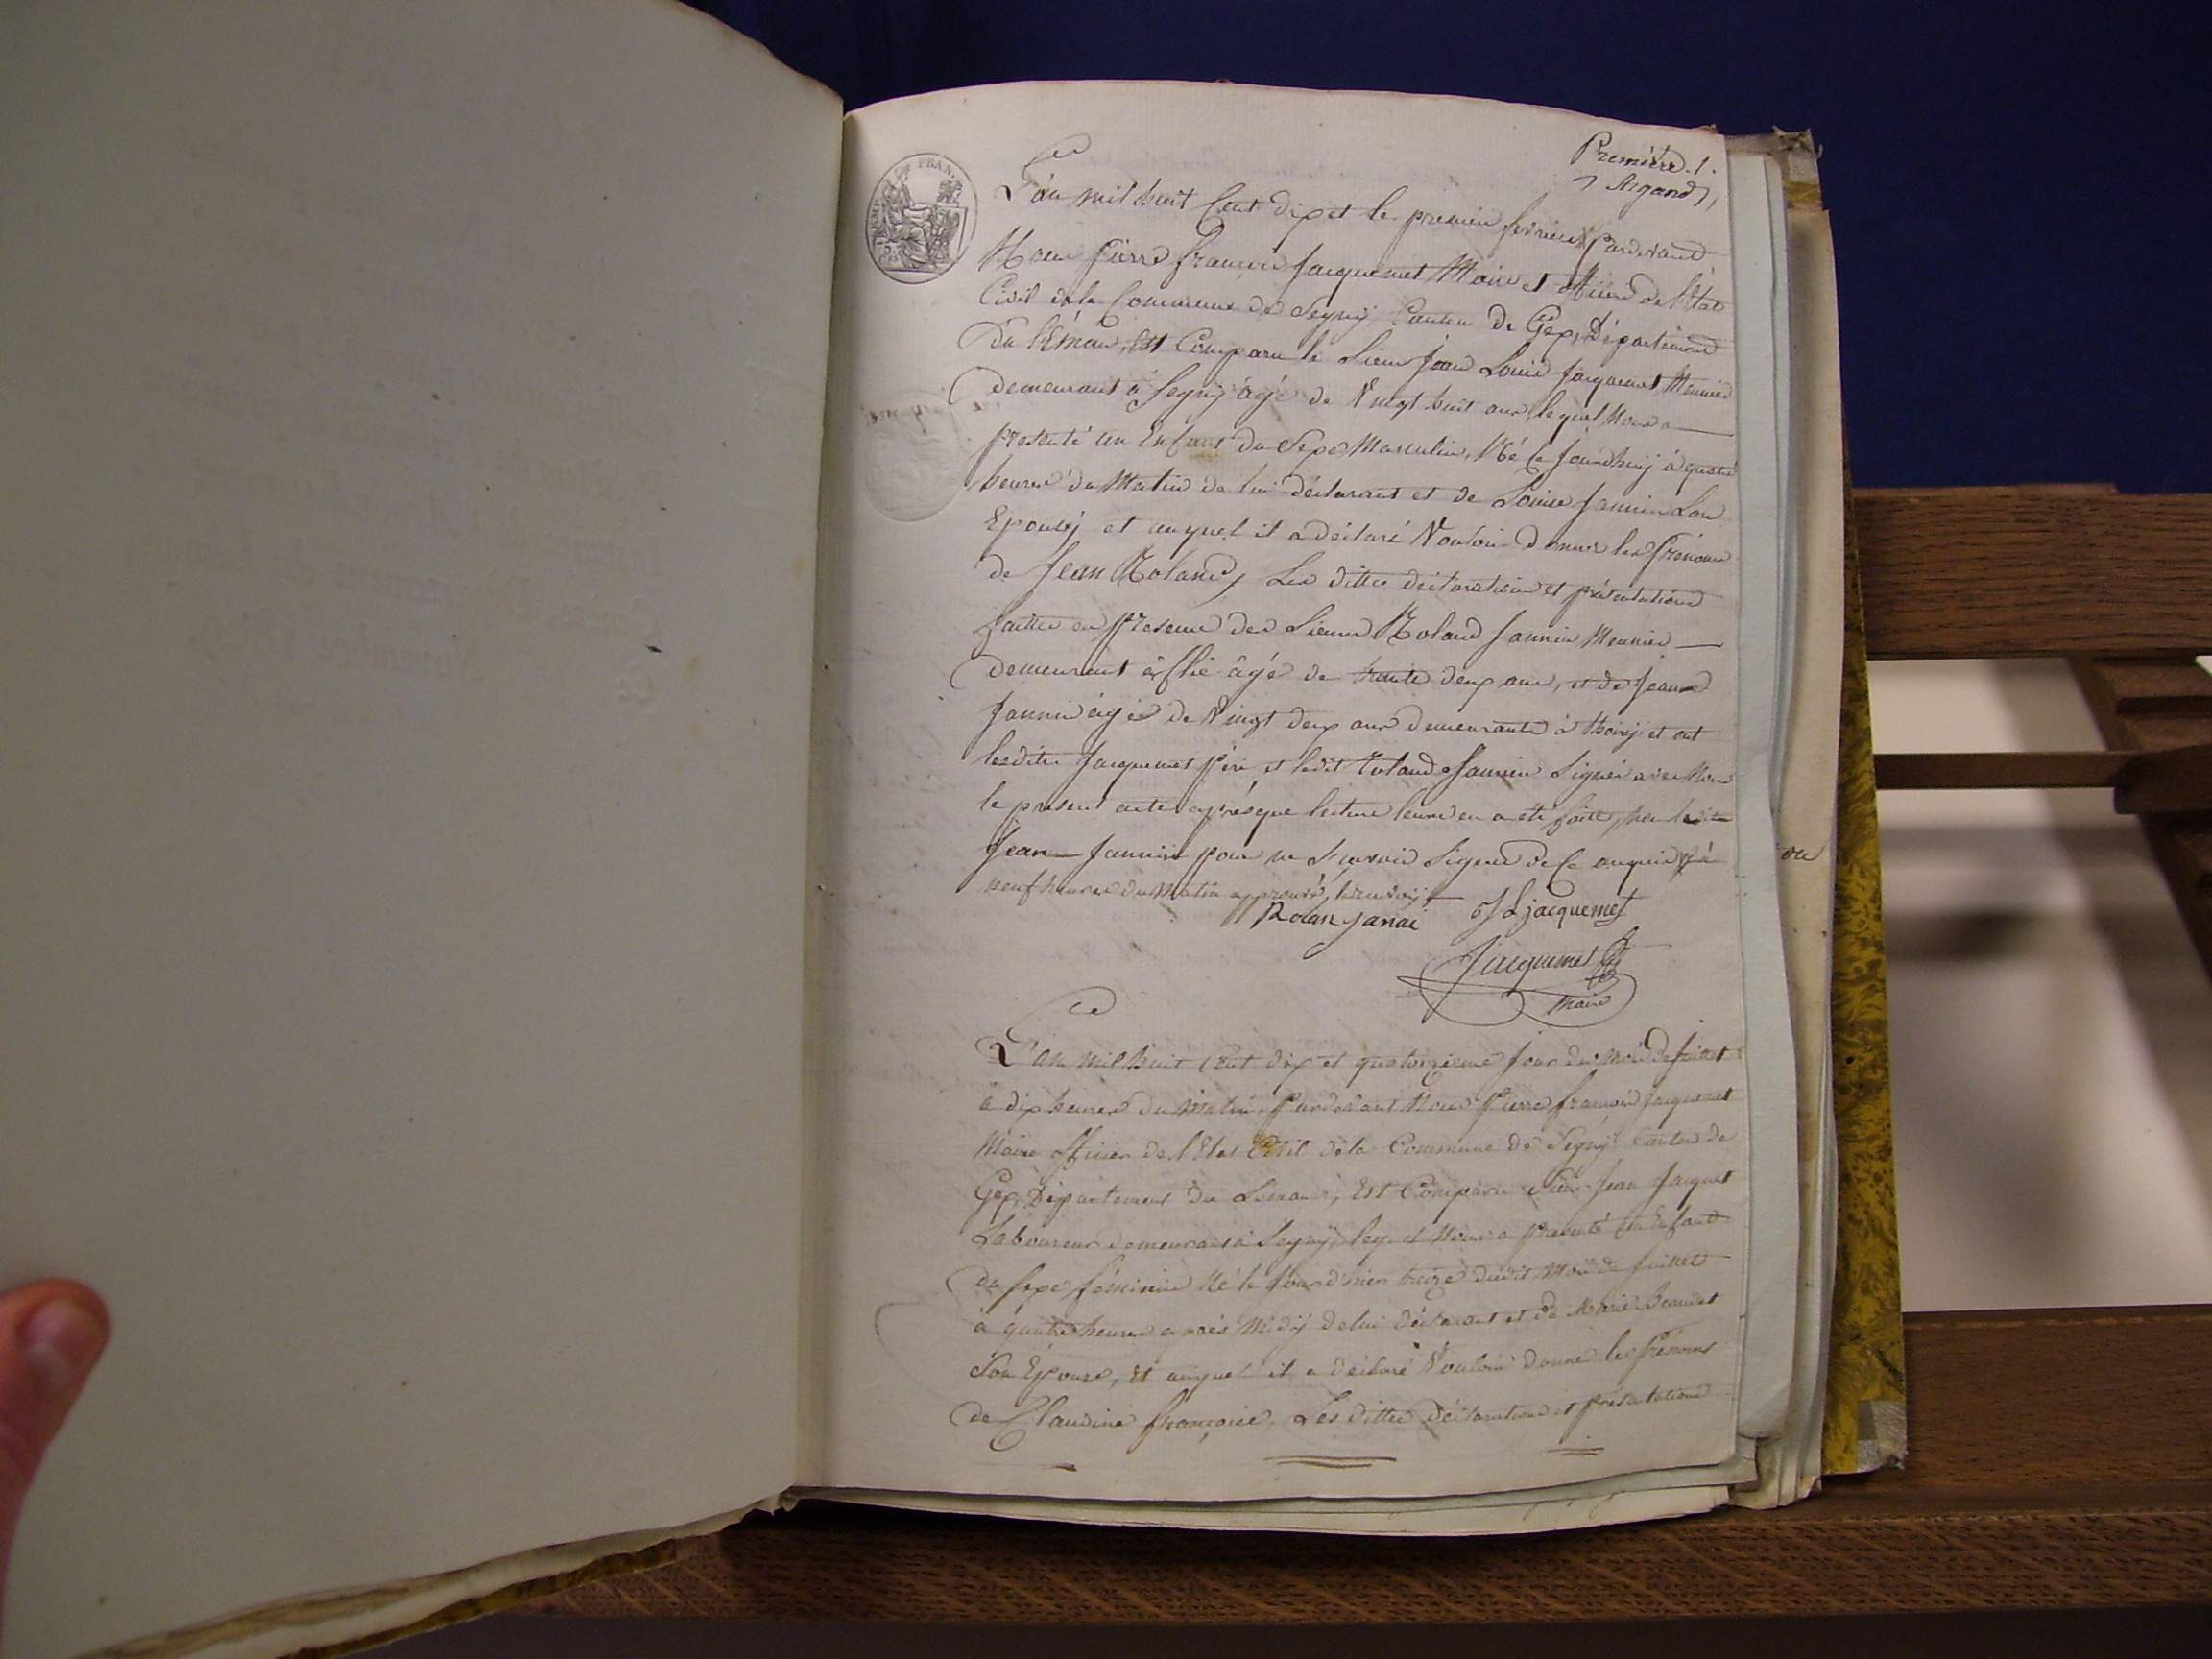 Première. 1.
Argand
L'an mil huit Cent dix et le premier fevrier Pardevant
Nous Pierre François Jacquemet Maire et officier de l'état
Civil de la Commune de Segny Canton de Gex, Département
du Léman, Est Comparu le Sieur Jean Louis Jacquemet Meunier
demeurant à Segny âgé de Vingt huit ans, lequel Nous a
présenté un Enfant du Sexe Masculin, Né ce Jourdhuy à quatre
heures du Matin de lui déclarant et de Louise Jannin Son
Epouse, et auquel il a déclaré Vouloir donner les prénoms
de Jean Roland, Les dittes déclaration et présentation
faittes en présence des Sieurs Roland Jannin Meunier
demeurant à flie âgé de trente deux ans, et de Jean
Jannin âgé de Vingt deux ans demeurants à thoiry et ont
lesdits Jacquemet père et ledit Roland Jannin Signés avec Nous
le présent acte après que lecture leurs en a été faitte, non ledit
Jean Jannin pour ne Scavoir Signer de ce enquis
neuf heures du Matin approuvé, le renvoij
Rolan janai J L jacquemet
Jacquemet
Maire
L'an mil huit Cent dix et quatorzième Jour du Mois de Juillet
à dix heures du Matin, Pardevant Nous Pierre françois Jacquemet
Maire officier de l'Etat Civil de la Commune de Segny Canton de
Gex, Département du Léman, Est Comparu Sieur Jean Jacquet
Laboureur demeurant à Segny, lequel Nous a présenté un Enfant
du Sexe féminin Né le Jour d'hier treize dudit Mois de Juillet
à quatre heures après Midy de lui déclarant et de Marie Beaudet
Son Epouse, et auquel il a déclaré Vouloir donner les prénoms
de Claudine françoise, Les dittes déclaration et présentation